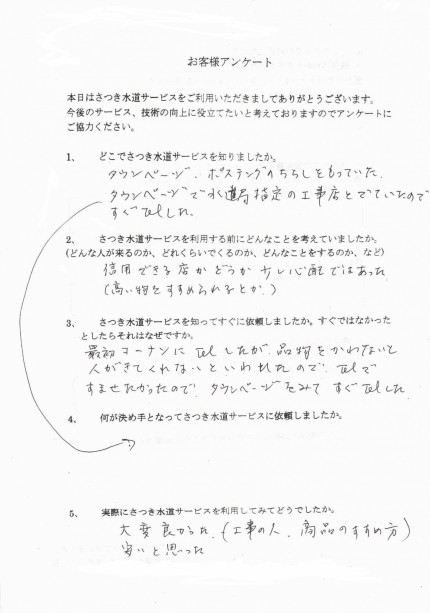 お客様アンケート
本日はさつき水道サービスをご利用いただきましてありがとうございます。
今後のサービス、技術の向上に役立てたいと考えておりますのでアンケートに
ご協力ください。
1、 どこでさつき水道サービスを知りましたか。
タウンページ、ポステングのちらしをもっていた、
タウンページで水道局指定の工事店とでていたので
すぐtelした。
2、 さつき水道サービスを利用する前にどんなことを考えていましたか。
(どんな人が来るのか、どれくらいでくるのか、どんなことをするのか、など)
信用できる店かどうか少し心配ではあった
(高い物をすすめられるとか.)
3、 さつき水道サービスを知ってすぐに依頼しましたか。すぐではなかった
としたらそれはなぜですか。
最初コーナンにtelしたが、品物をかわないと
人がきてくれないといわれたので、telで
すませたかったので、タウンページをみてすぐtelした.
4、 何が決め手となってさつき水道サービスに依頼しましたか。
5、 実際にさつき水道サービスを利用してみてどうでしたか。
大変良かった.(工事の人、商品のすすめ方)
安いと思った